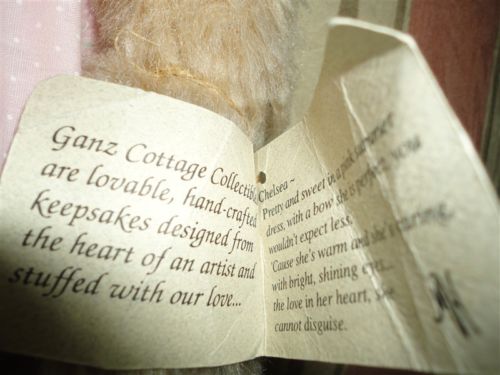 Ganz Cottage Collectibl
are lovable, hand-crafted
keepsakes designed from
the heart of an artist and
stuffed with our love...
Chelsea ~
Pretty and sweet in a pink
dress, with a bow she is perfect, NOW
wouldn't expect less.
'Cause she's warm and she's
with bright, shining eyes...
the love in her heart, she
cannot disguise.